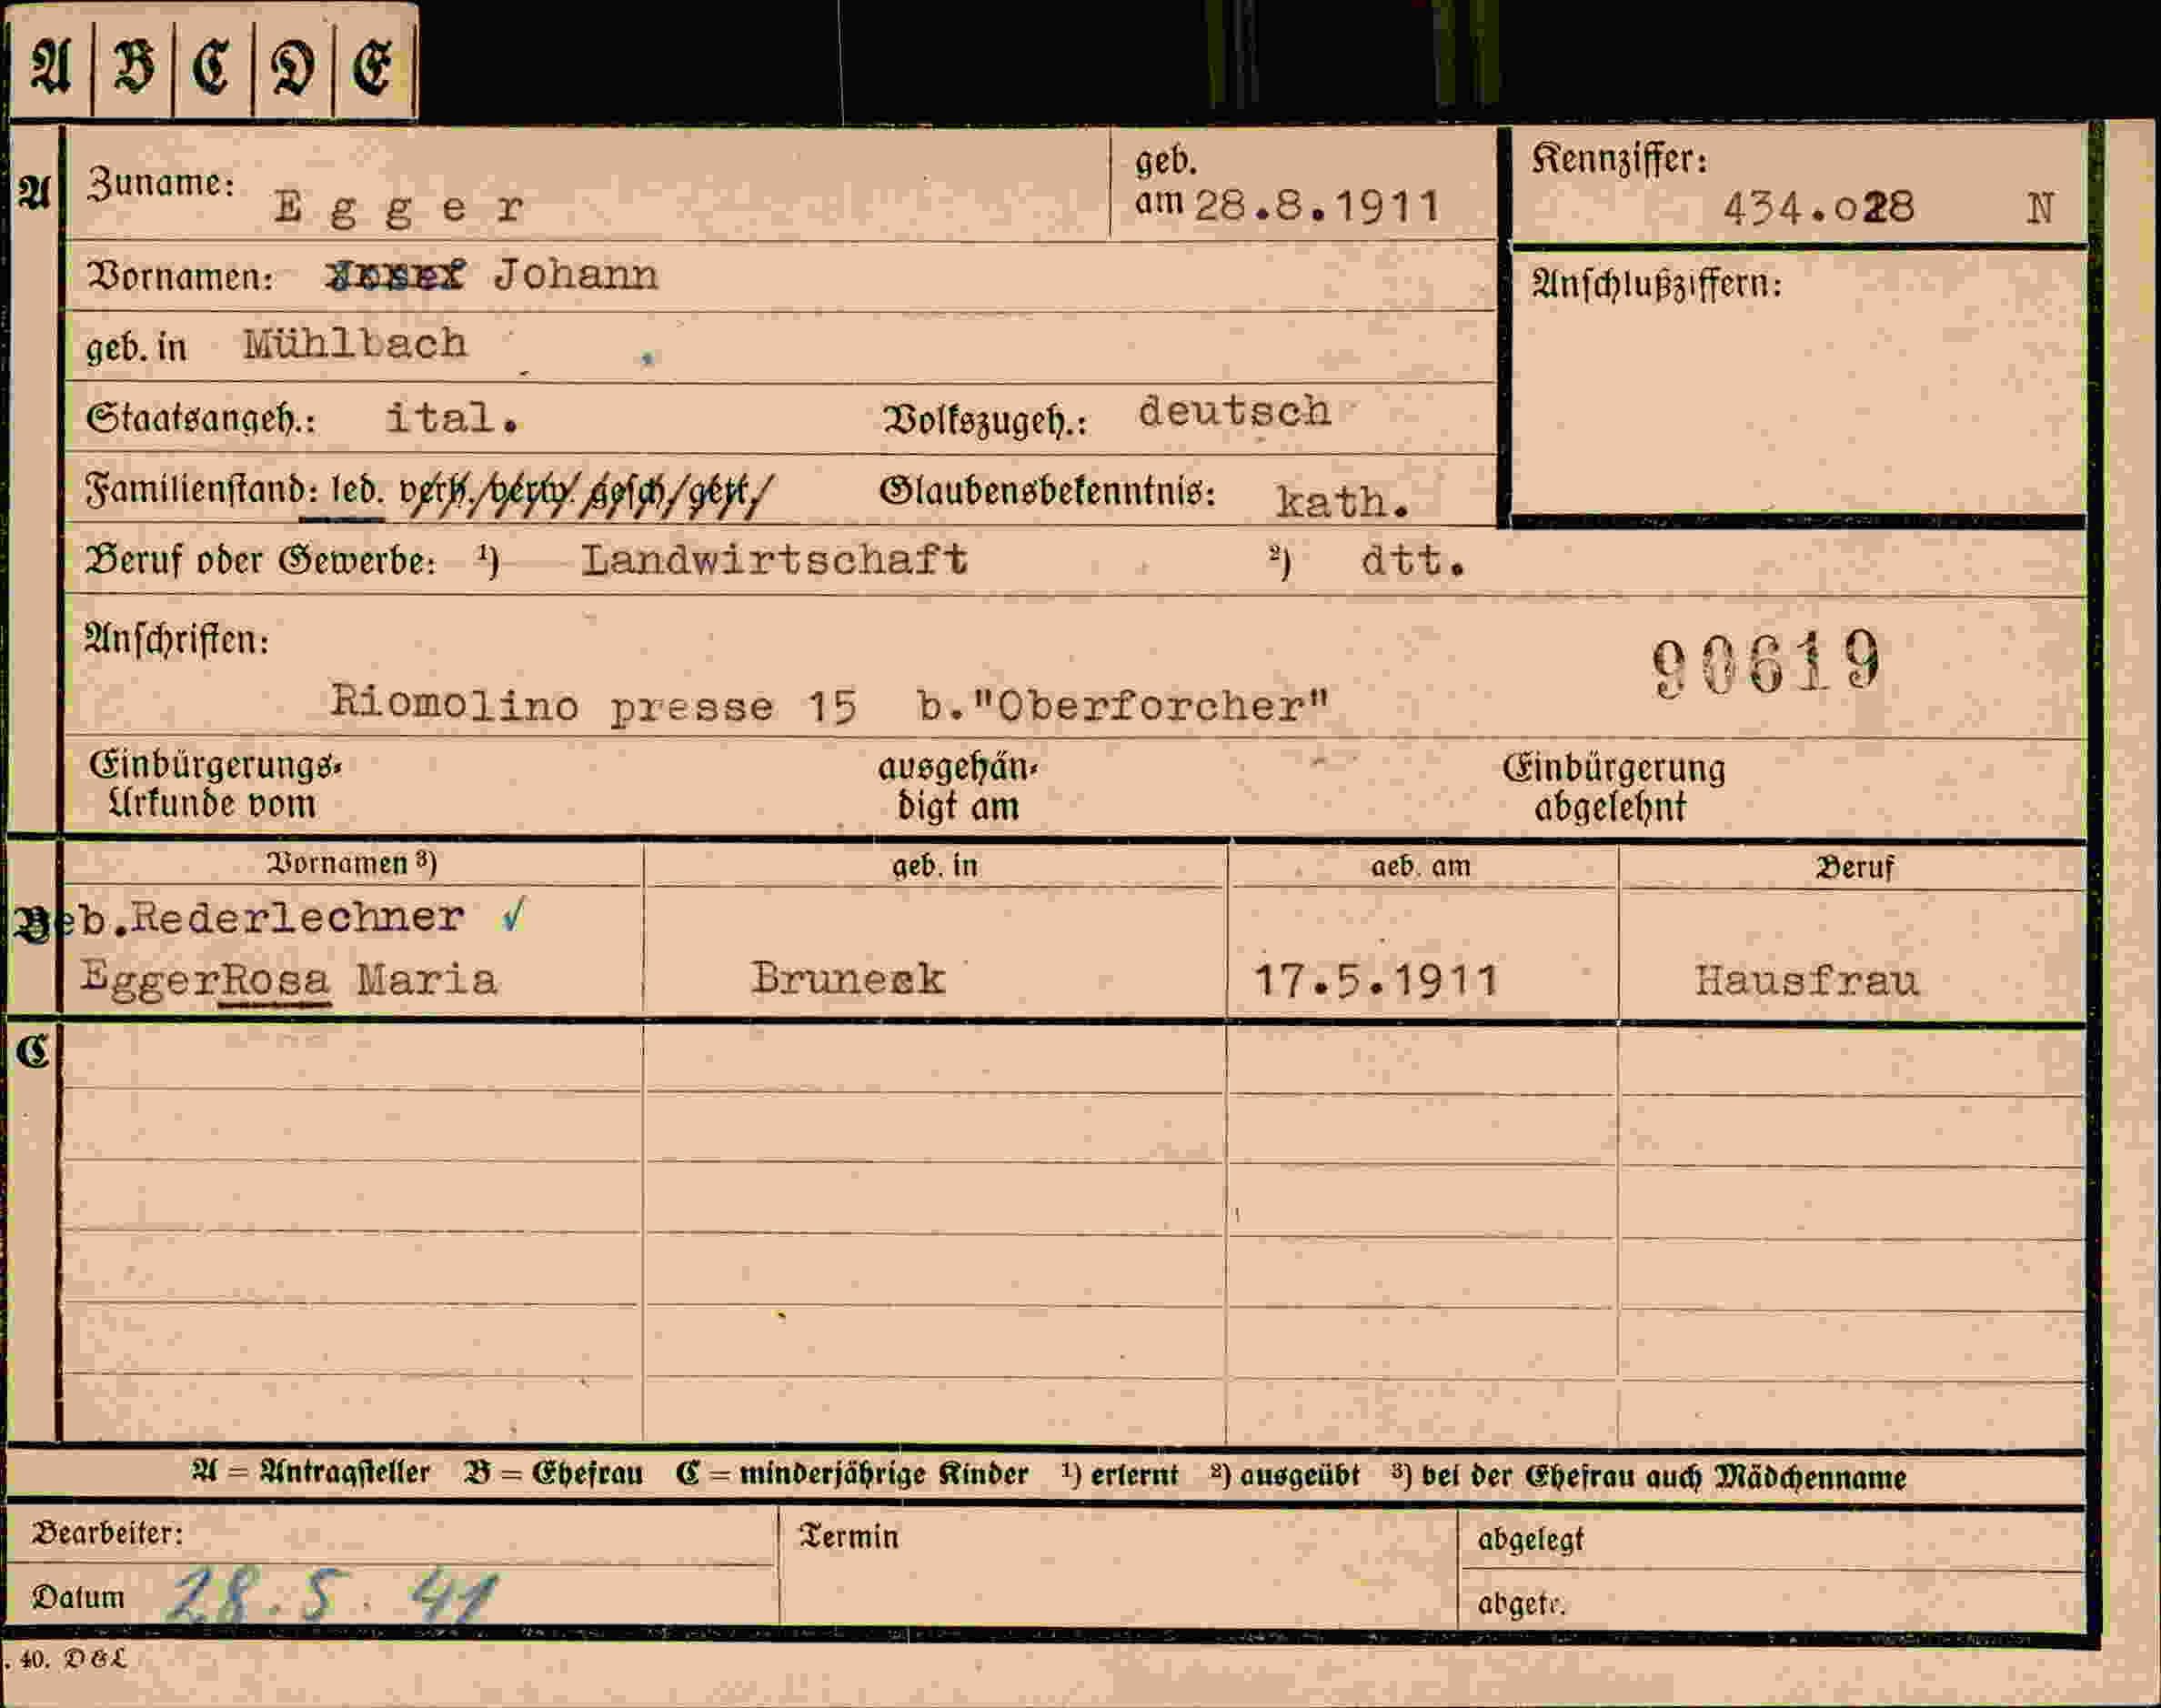 A B C D E
A Zuname: Egger geb. am 28.8.1911 Kennziffer: 434.o28 N
Vornamen: Josef Johann Anschlußziffern:
geb. in Mühlbach
Staatsangeh.: ital. Volkszugeh.: deutsch
Familienstand: led. verh./verw./gesch./getr./ Glaubensbekenntnis: kath.
Beruf oder Gewerbe: ¹) Landwirtschaft ²) dtt.
Anschriften: 90619
Riomolino presse 15 b."Oberforcher"
Einbürgerungs- ausgehän- Einbürgerung
Urkunde vom digt am abgelehnt
Vornamen ³) geb. in geb. am Beruf
B eb.Rederlechner ✓
Egger Rosa Maria Bruneck 17.5.1911 Hausfrau
C
A = Antragsteller B = Ehefrau C = minderjährige Kinder ¹) erlernt ²) ausgeübt ³) bei der Ehefrau auch Mädchenname
Bearbeiter: Termin abgelegt
Datum 28.5.41 abgetr.
. 40. D&L